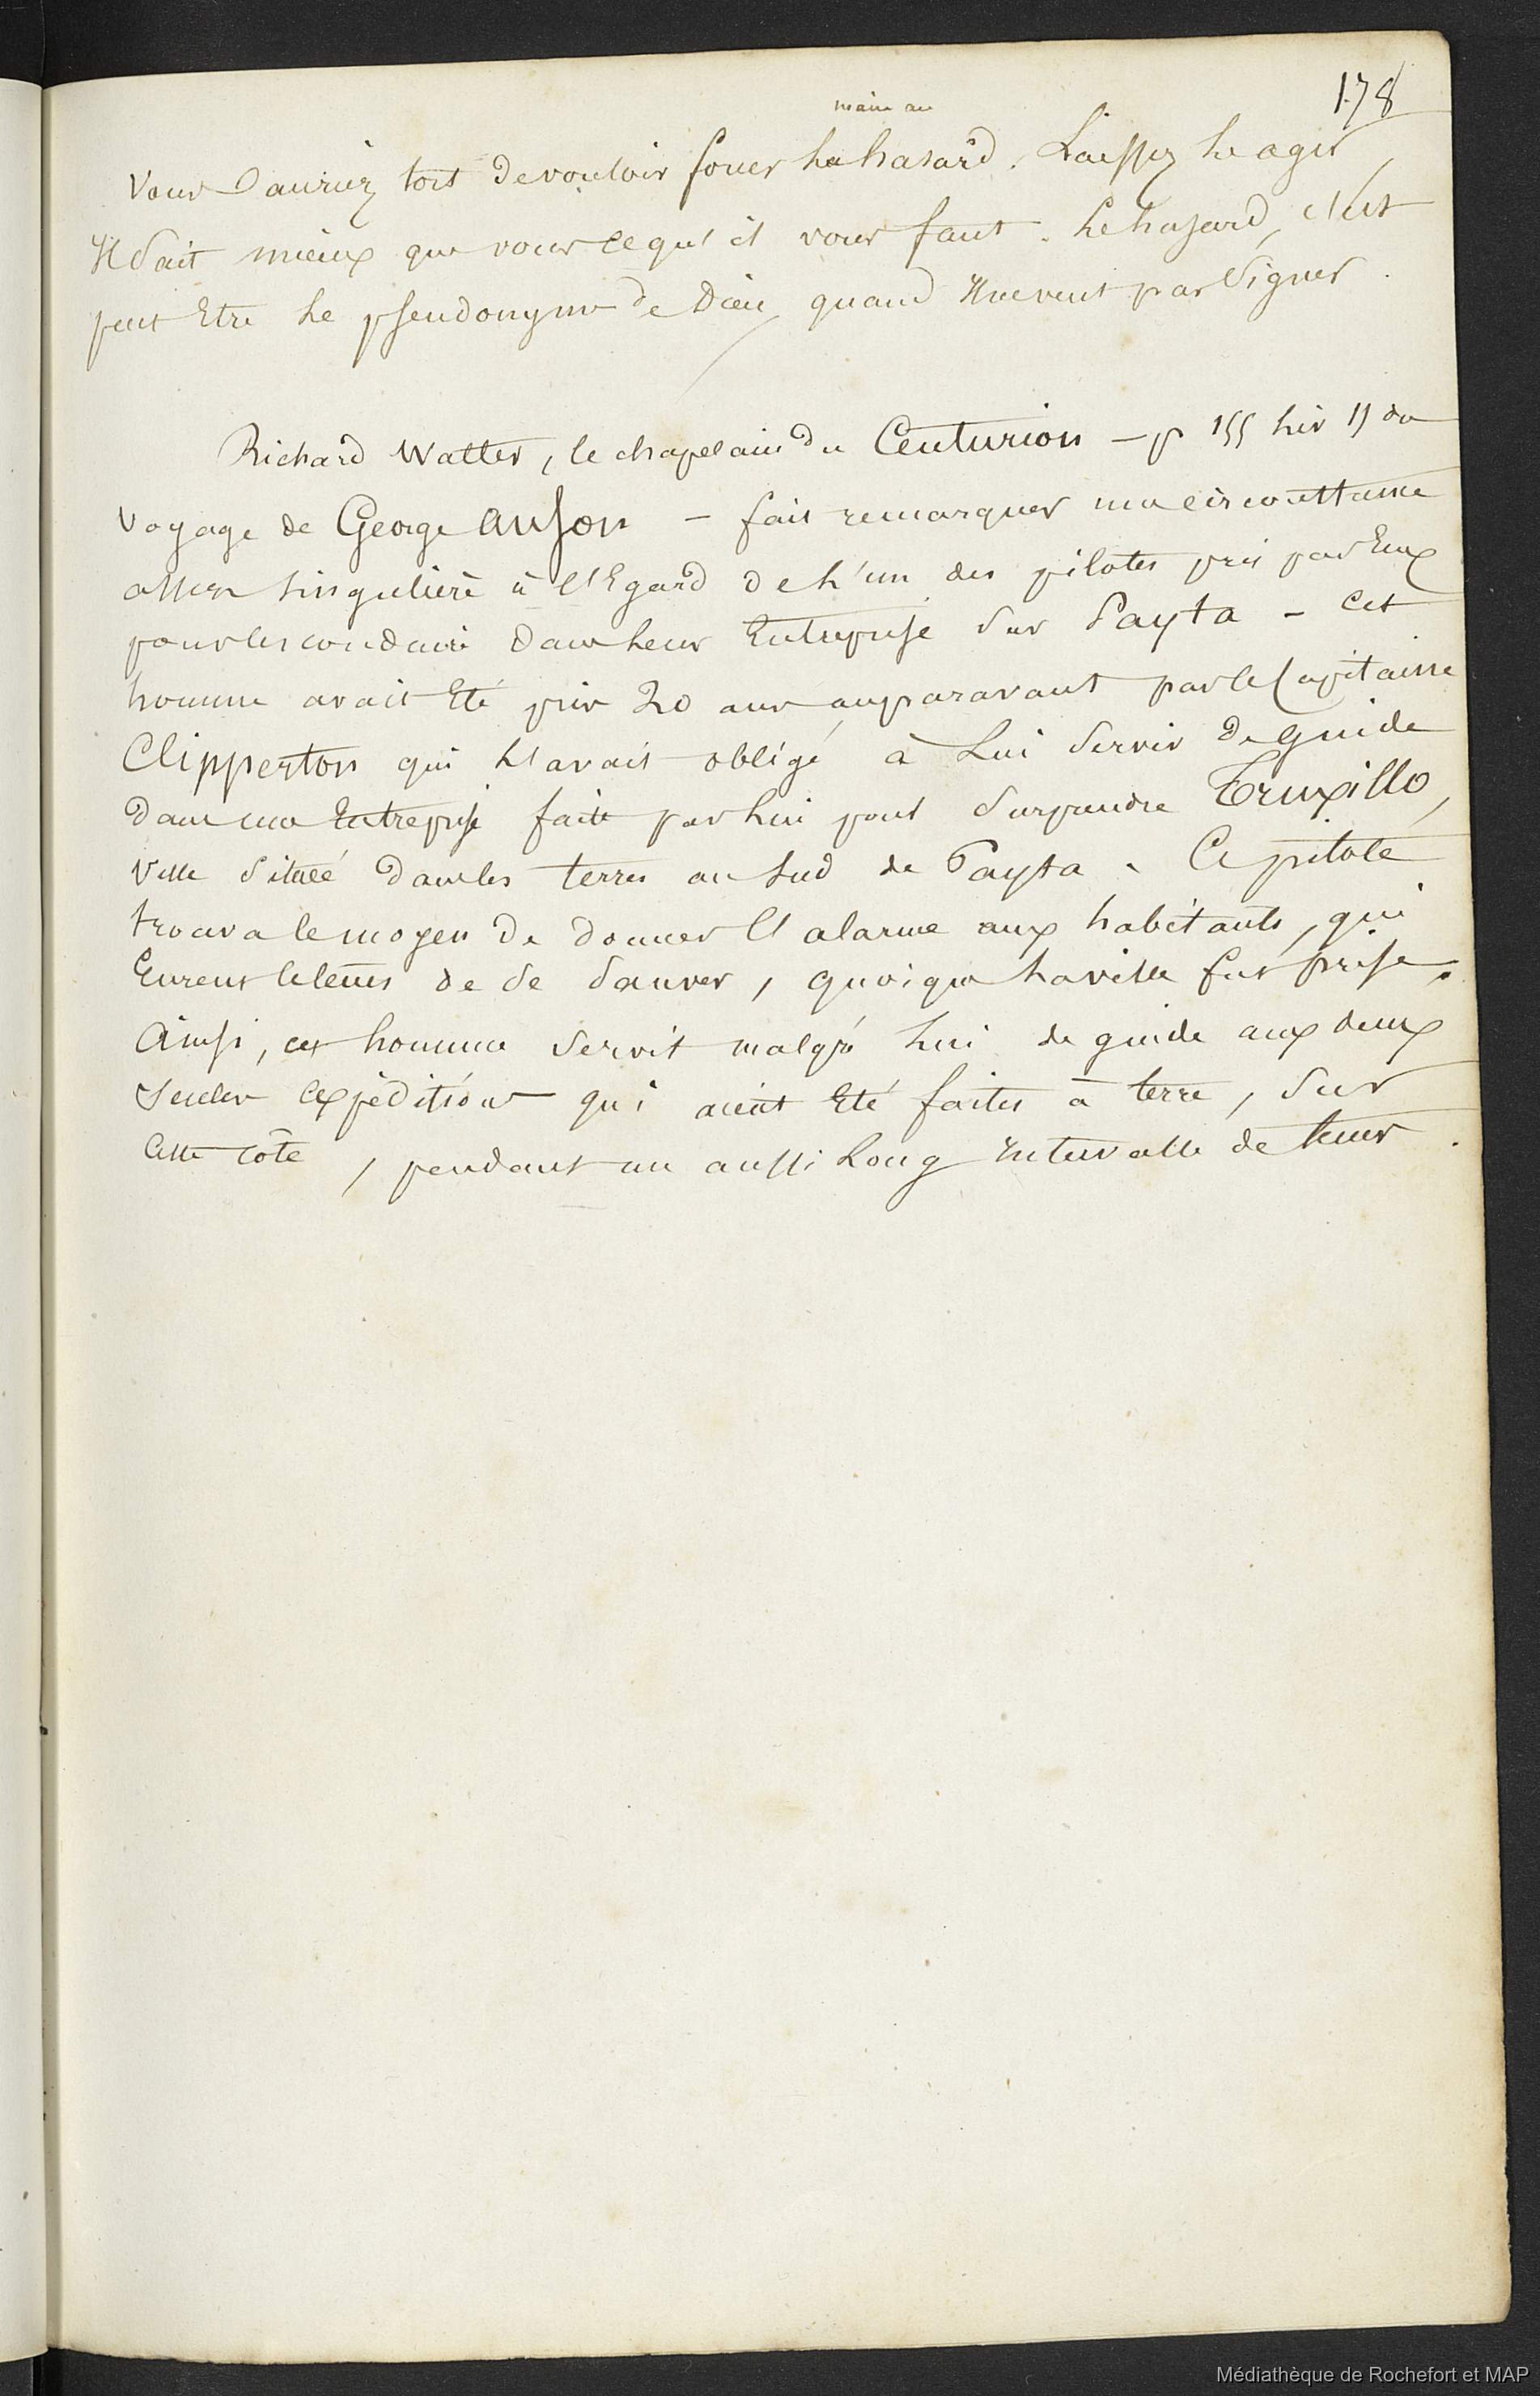 178
main au
Vous auriez tort de vouloir forcer la hasard. Laissez le agir,
Il sait mieux que vous ce qu'il vous faut. Le hasard, c'est
peut Etre le pseudonyme de Dieu, quand Il ne veut pas signer.
Richard Walter, le chapelain du Centurion – p 155 liv 11 du
Voyage de George Anson – fait remarquer une circonstance
assez singulière à l'Egard de l'un des pilotes pris par Eux
pour les conduire dans leur Entreprise sur Payta – Cet
homme avait Eté pris 20 ans auparavant par le Capitaine
Clipperton qui l'avait obligé à Lui servir de guide
dans une Entreprise faite par lui pour surprendre Truxillo,
Ville située dans les terres au sud de Payta. Ce pilote
trouva le moyen de donner l'alarme aux habitants, qui
Eurent le tems de se sauver, quoique la ville fut prise.
Ainsi, cet homme servit malgré lui de guide aux deux
seules Expéditions qui aient Eté faites à terre, sur
Cette côte, pendant un aussi Long intervalle de tems.
Médiathèque de Rochefort et MAP